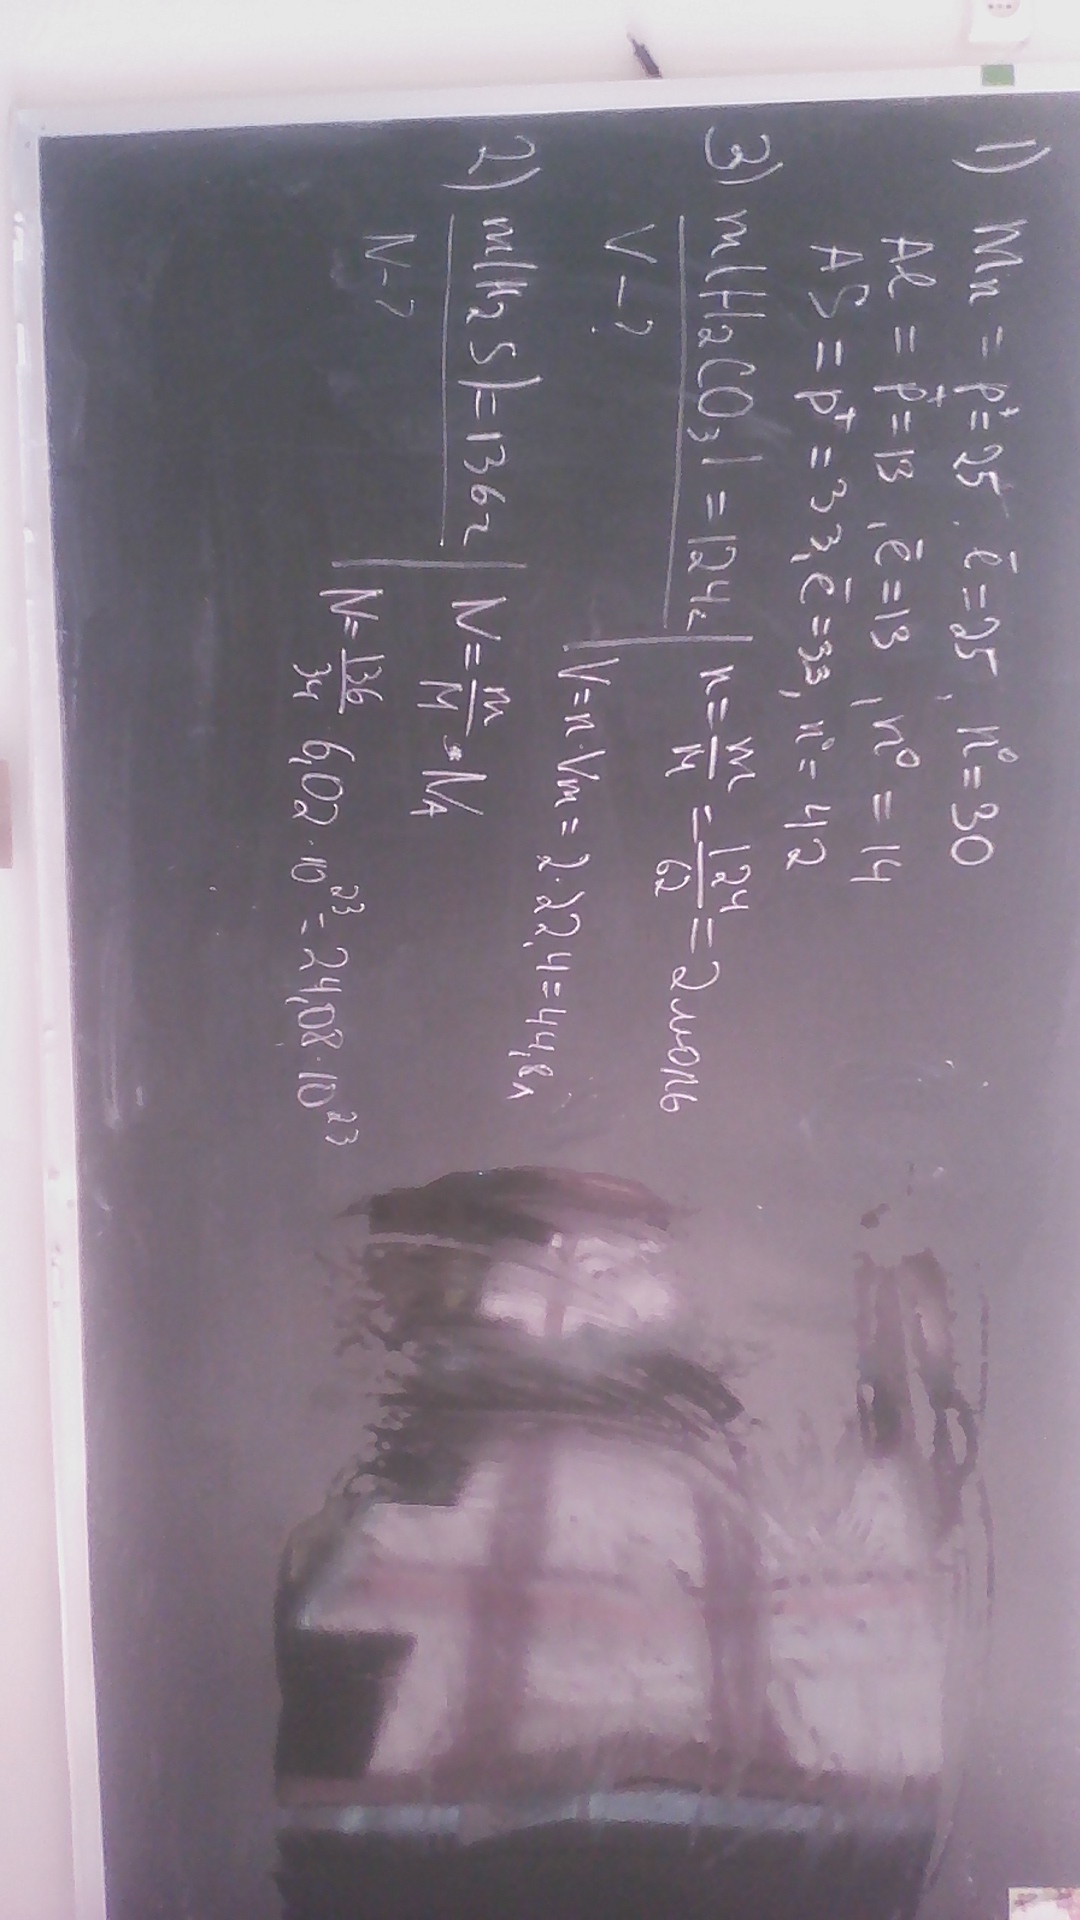 1) Mn = p⁺=25, ē=25, n⁰=30
Al = p⁺=13, ē=13, n⁰=14
AS = p⁺=33, ē=33, n⁰=42
3) m(H₂CO₃)=124г
V-?
n=m/M=124/62=2моль
V=n·Vm=2·22,4=44,8л
2) m(H₂S)=136г
N-?
N=m/M·NA
N=136/34 6,02·10²³=24,08·10²³